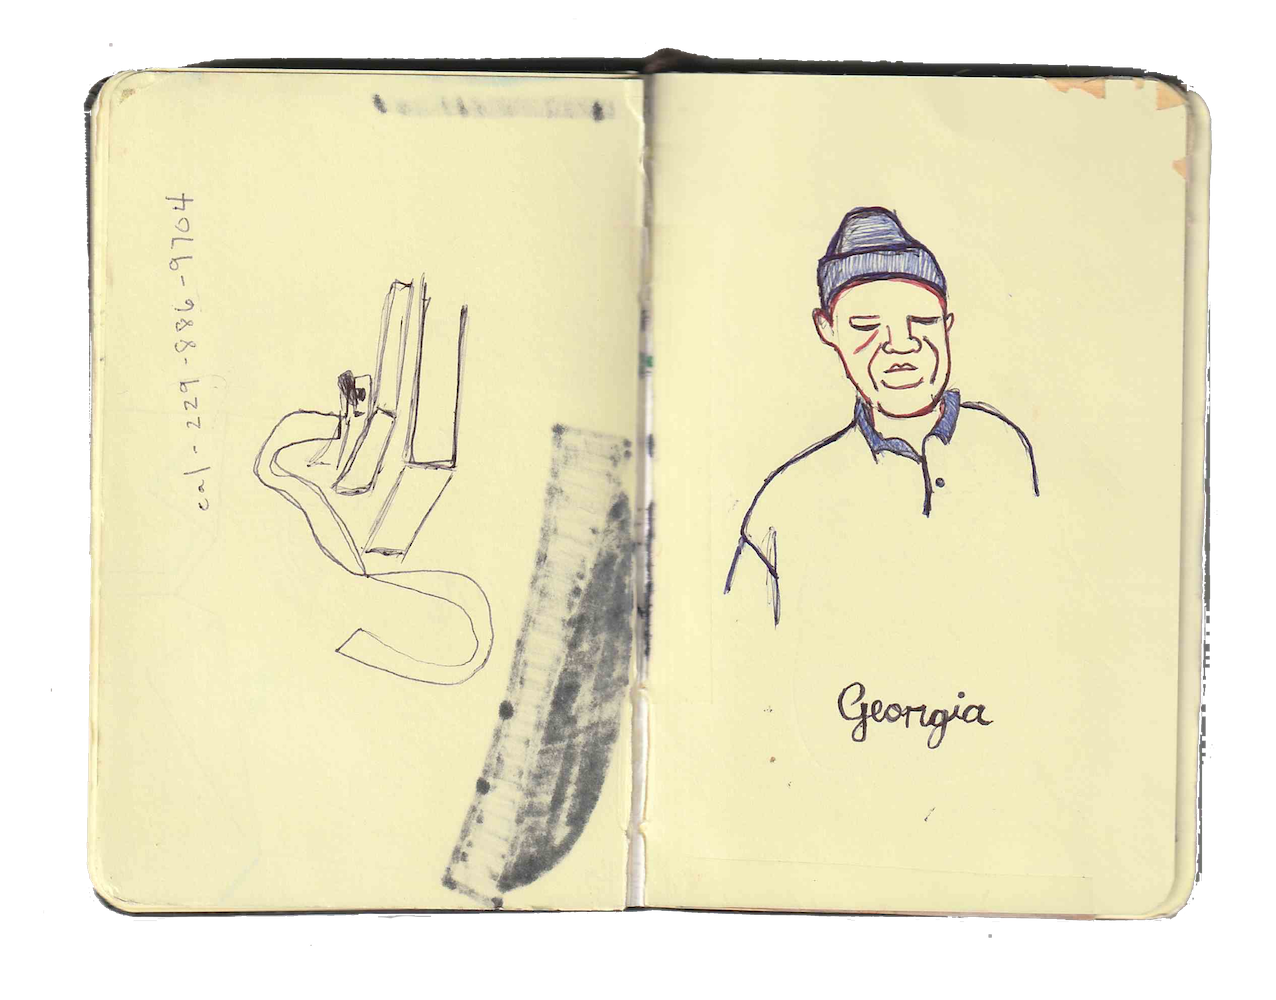 cal - 229-886-9704
Georgia